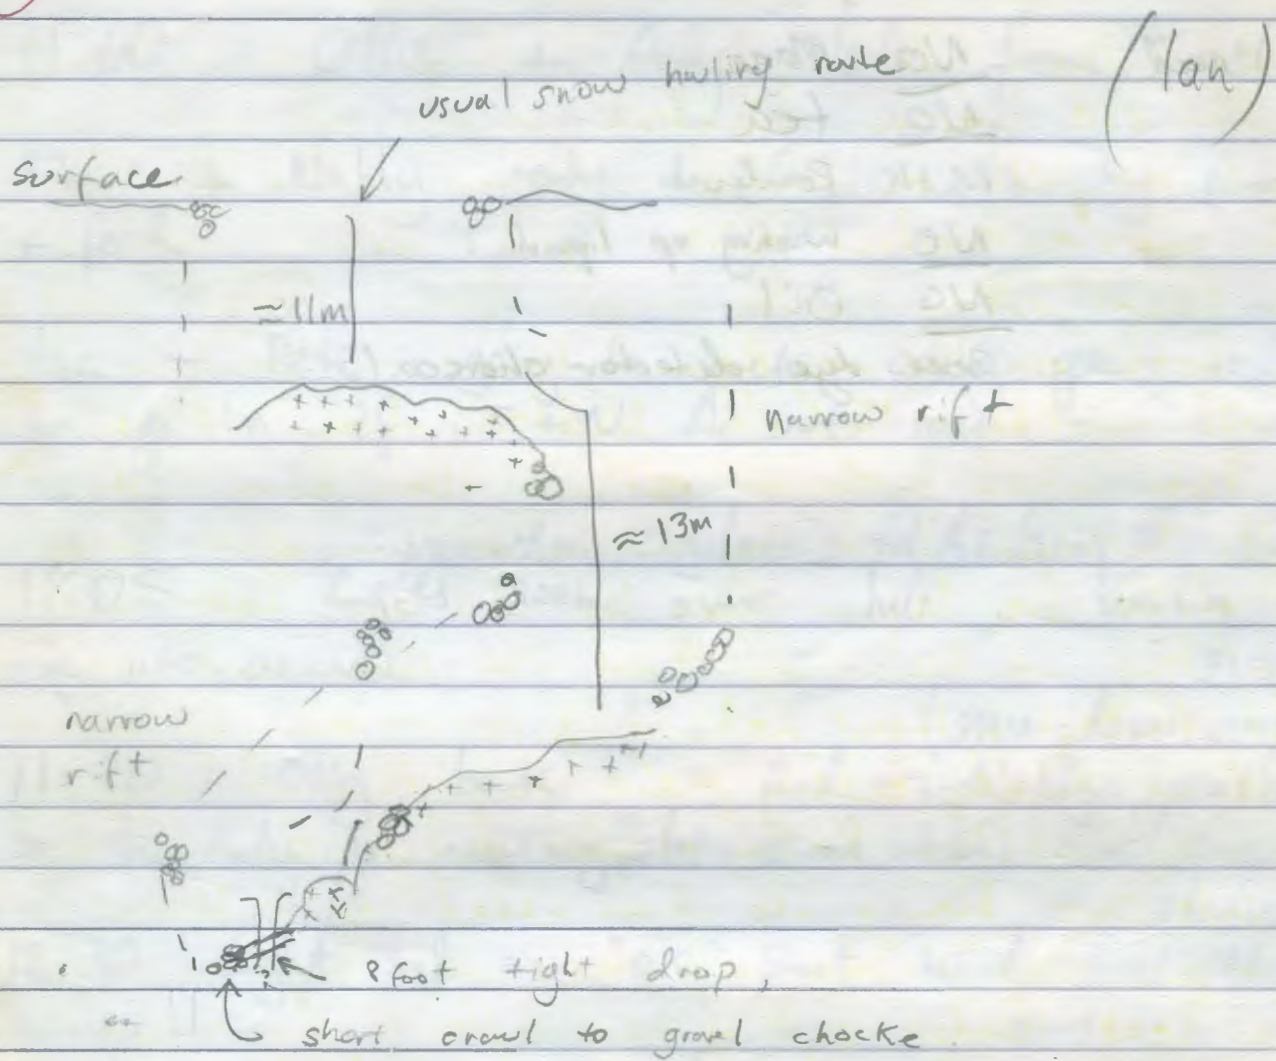 (Ian)
usual snow hauling route
surface
≈11m
narrow rift
≈13m
narrow
rift
8 foot tight drop,
short crawl to gravel chocke